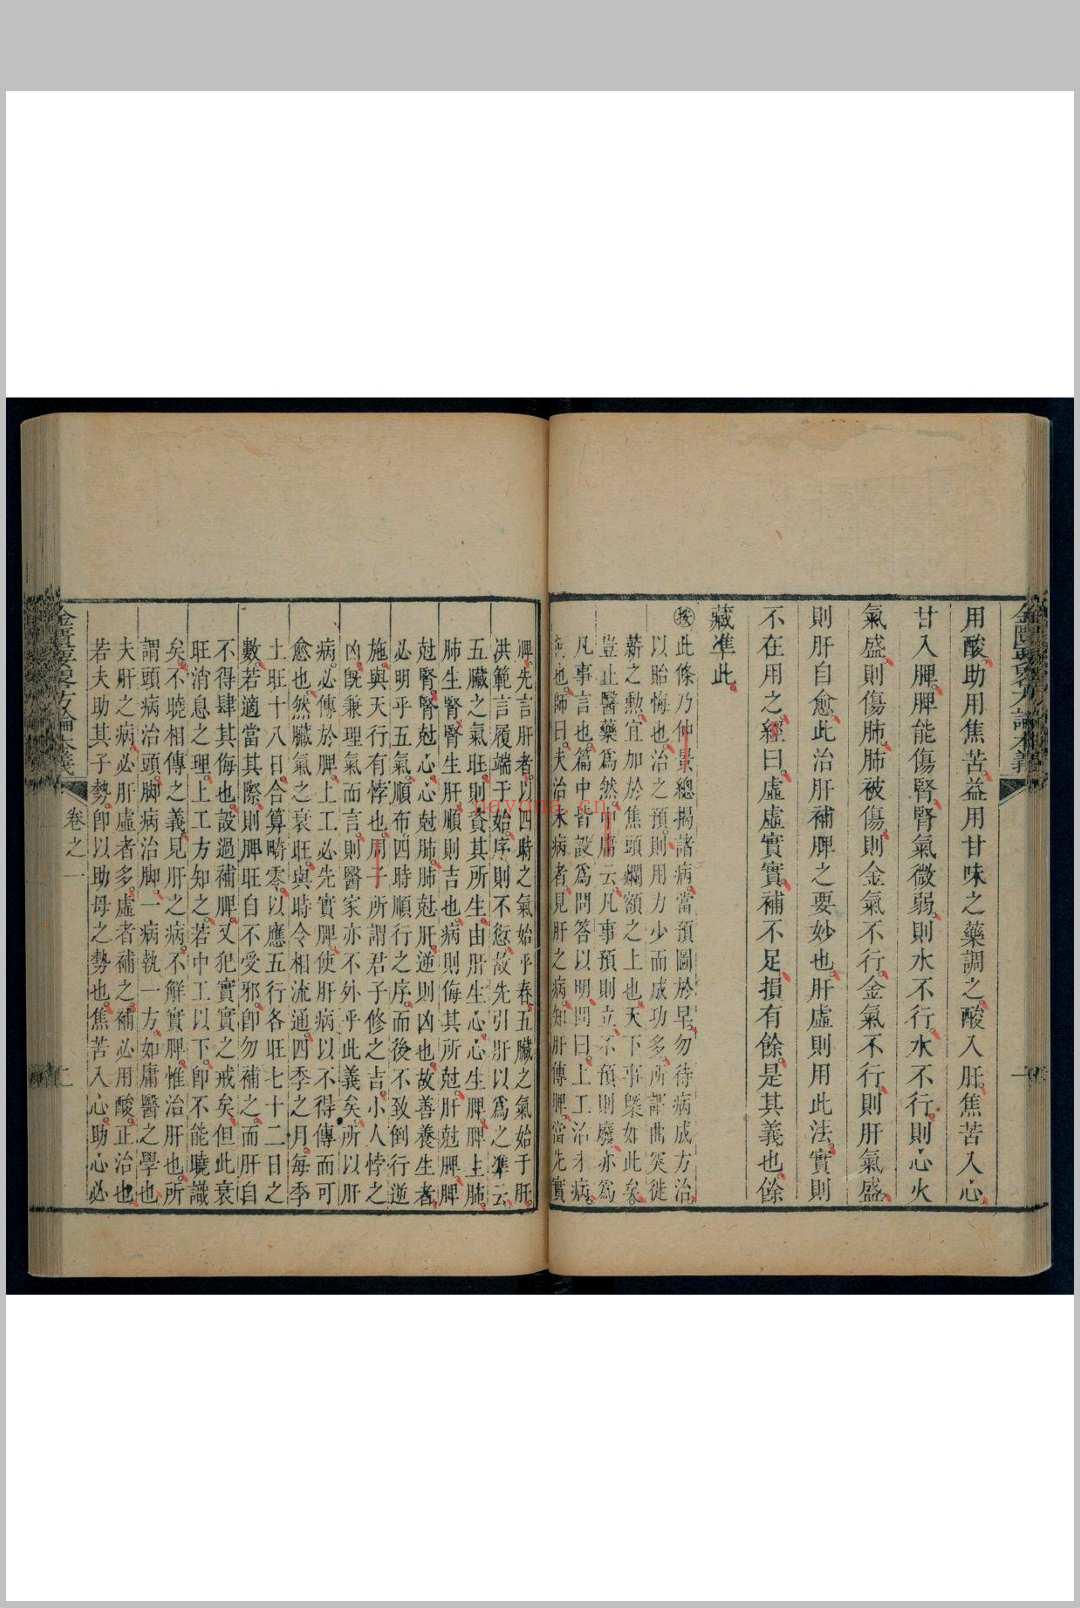 金匱要畧方論本義
用酸助用焦苦益用甘味之藥調之酸入肝焦苦入心
甘入脾脾能傷腎腎氣微弱則水不行水不行則心火
氣盛則傷肺肺被傷則金氣不行金氣不行則肝氣盛
則肝自愈此治肝補脾之要妙也肝虛則用此法實則
不在用之經曰虛虛實實補不足損有餘是其義也餘
藏準此
按此條乃仲景總揭諸病當預圖於早勿待病成方治
以貽悔也治之預則用力少而成功多所謂曲突徙
薪之勲宜加於焦頭爛額之上也天下事槩如此矣
豈止醫藥爲然中庸云凡事預則立不預則廢亦爲
凡事言也篇中皆設爲問答以明問曰上工治未病
何也師曰夫治未病者見肝之病知肝傳脾當先實
脾先言肝者以四時之氣始乎春五臟之氣始于肝
洪範言履端于始序則不愆故先引肝以爲之準云
五臟之氣旺則資其所生由肝生心心生脾脾土肺
肺生腎腎生肝順則吉也病則侮其所尅肝尅脾脾
尅腎腎尅心心尅肺肺尅肝逆則凶也故善養生者
必明乎五氣順布四時順行之序而後不致倒行逆
施與天行有悖也周子所謂君子修之吉小人悖之
凶旣兼理氣而言則醫家亦不外乎此義矣所以肝
病必傳於脾上工必先實脾使肝病以不得傳而可
愈也然臟氣之衰旺與時令相流通四季之月每季
土旺十八日合算畸零以應五行各旺七十二日之
數若適當其際則脾旺自不受邪卽勿補之而肝自
不得肆其侮也設過補脾又犯實實之戒矣但此衰
旺消息之理上工方知之若中工以下卽不能曉識
矣不曉相傳之義見肝之病不解實脾惟治肝也所
謂頭病治頭脚病治脚一病執一方如庸醫之學也
夫肝之病必肝虛者多虛者補之補必用酸正治也
若夫助其子勢卽以助母之勢也焦苦入心助心必
金匱要畧方論本義
卷之一
二